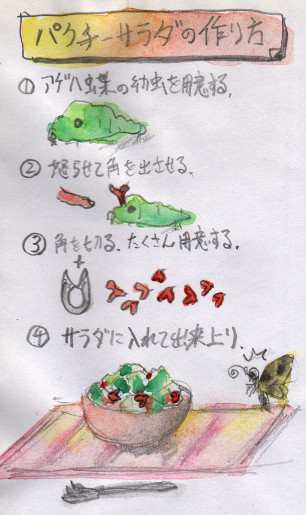 パクチーサラダの作り方
① アゲハ蝶の幼虫を用意する.
② 怒らせて角を出させる.
③ 角を切る. たくさん用意する.
+
④ サラダに入れて出来上り.